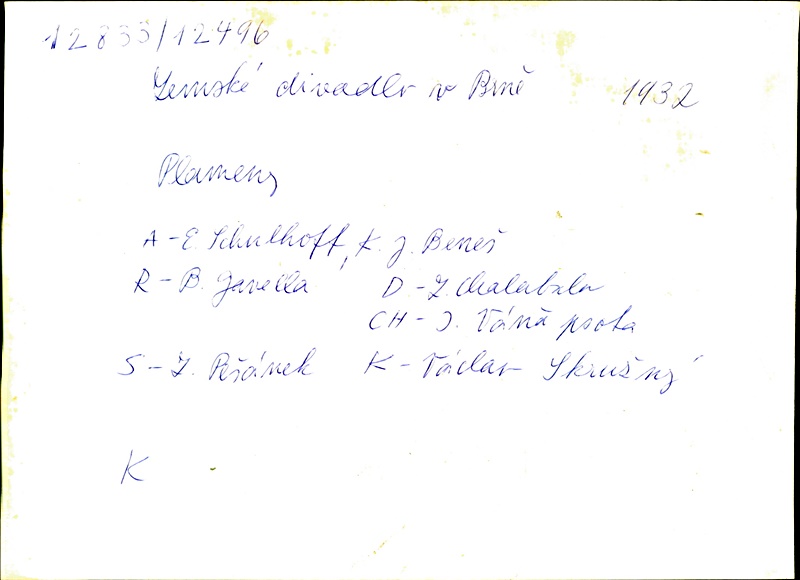 12833/12496
Zemské divadlo v Brně 1932
Plameny
A - E. Schulhoff, K. J. Beneš
R - B. Gavella D - Z. Chalabala
CH - I. Váňa psota
S - Z. Pešánek K - Václav Skrušný
K